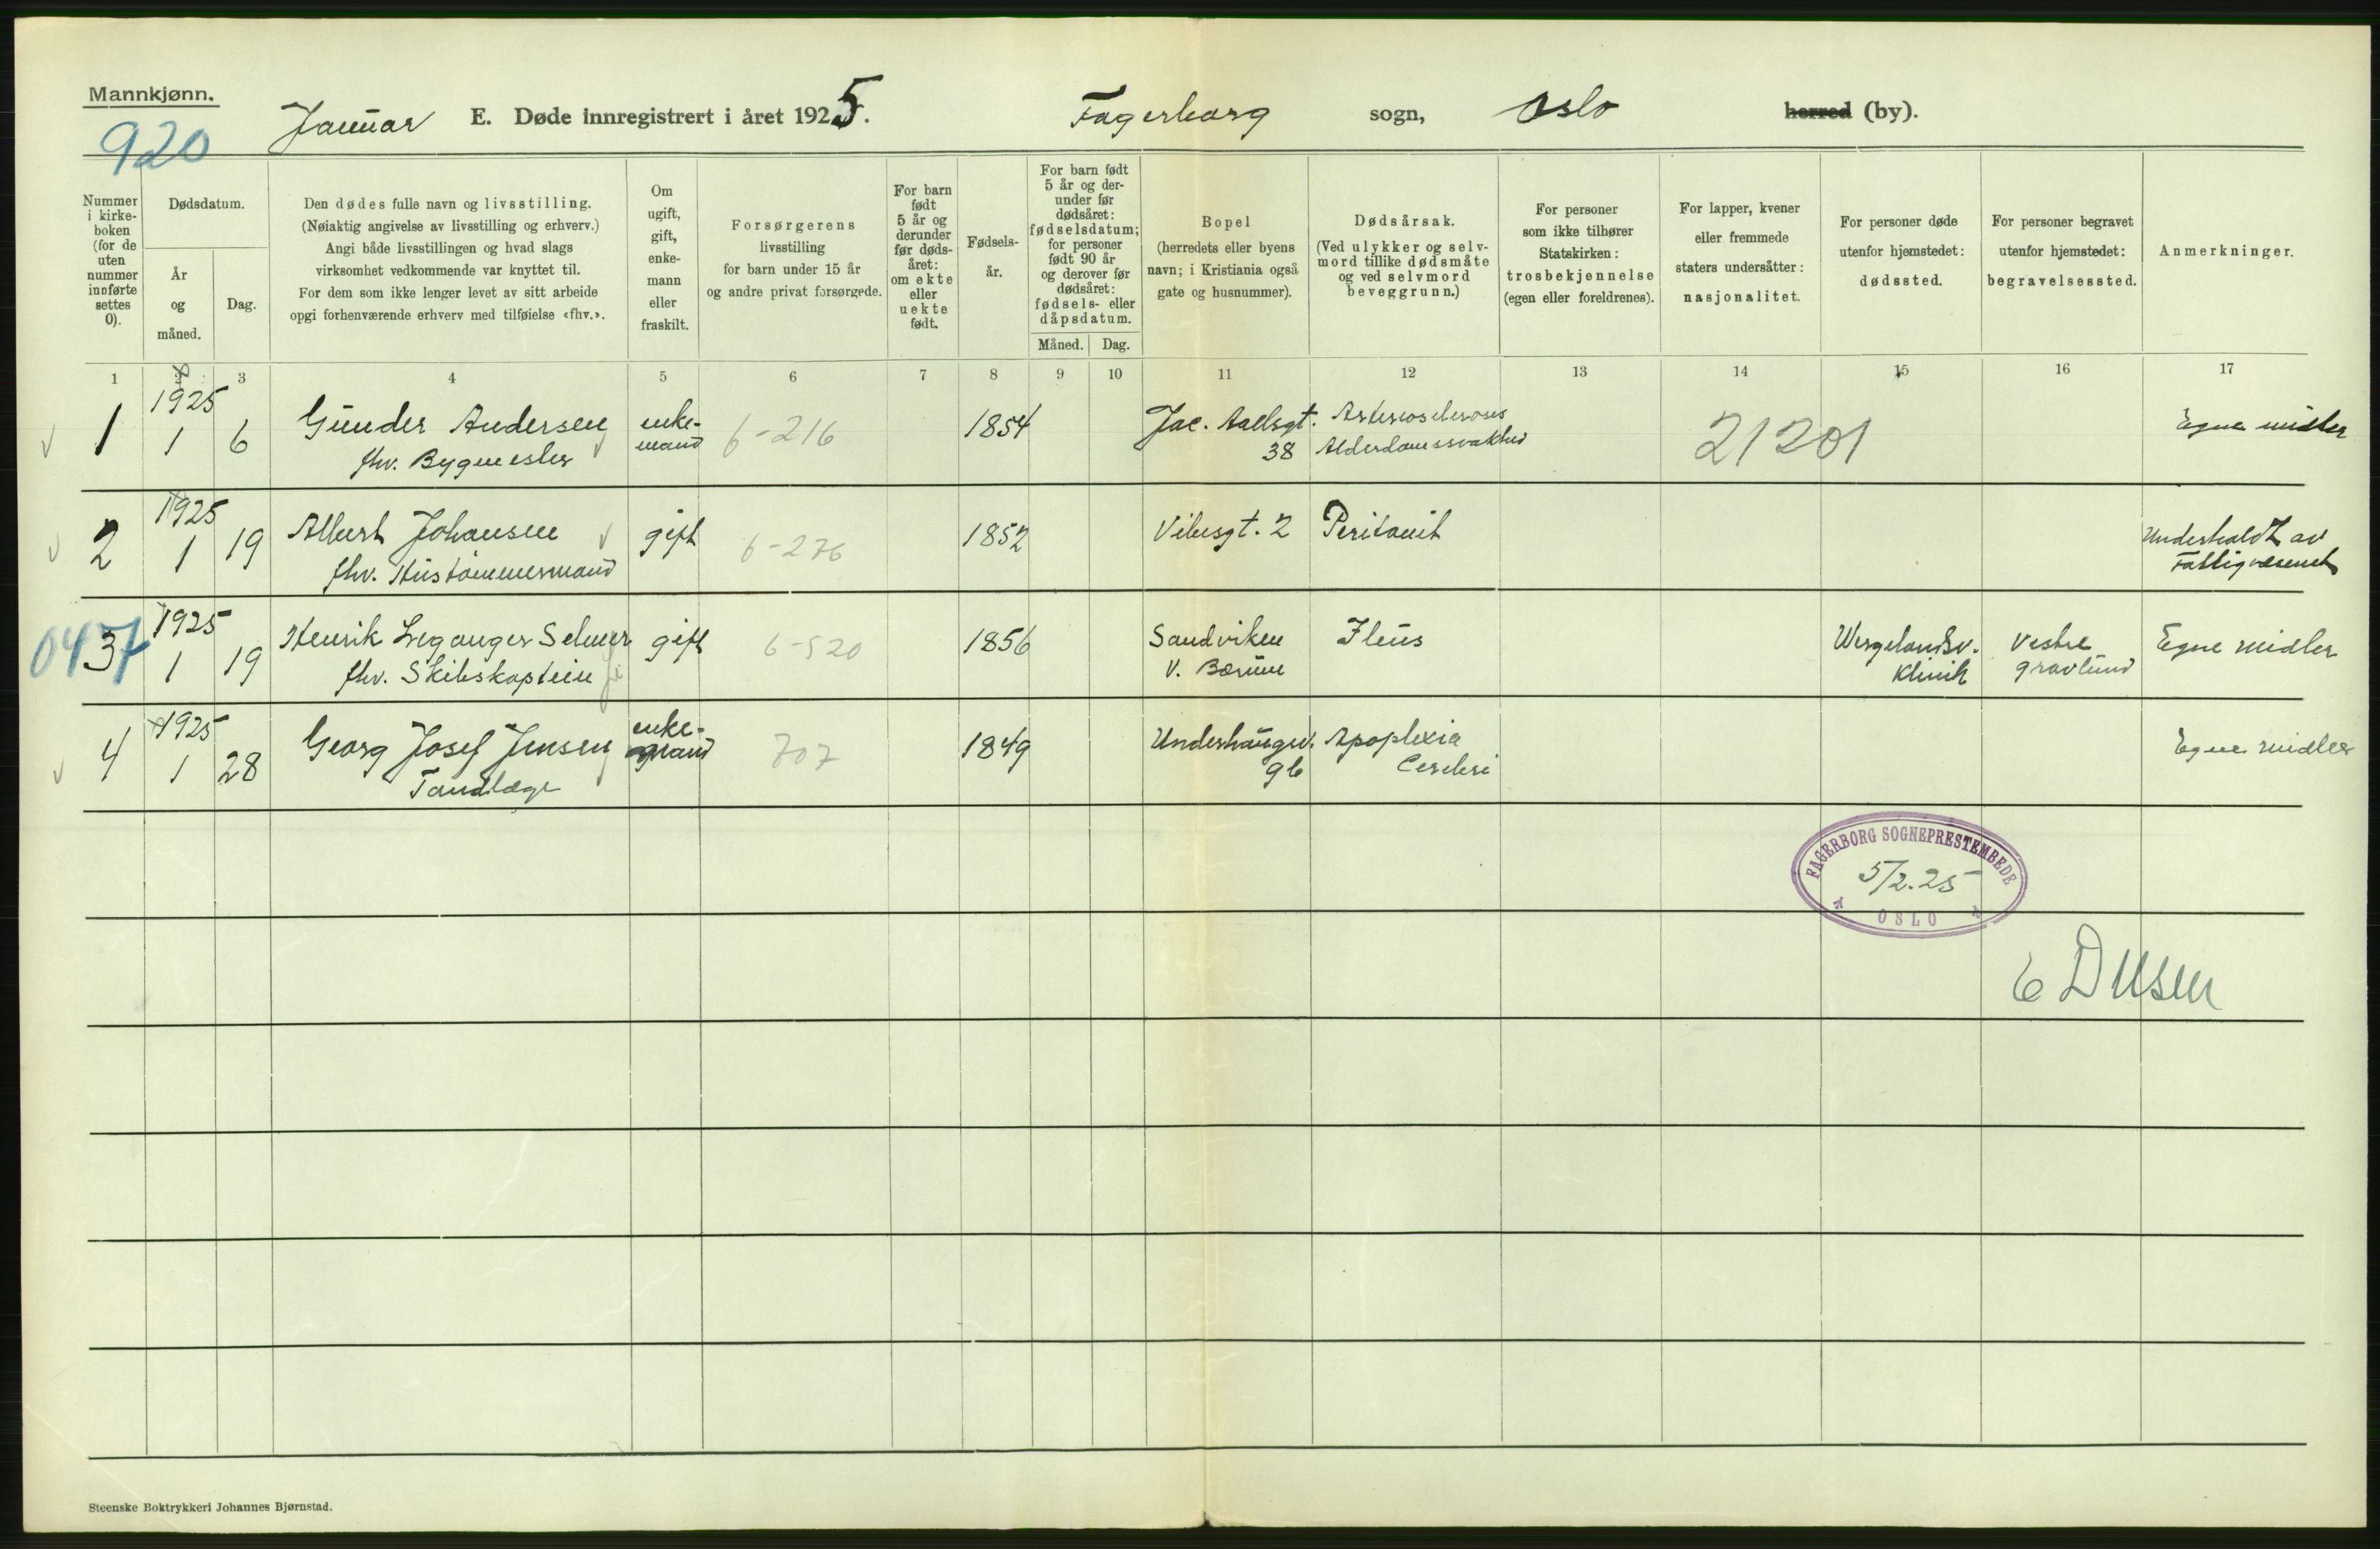 Mannkjønn.
920
Januar E. Døde innregistrert i året 1925. Fagerborg sogn, Oslo herred (by).
Nummer i kirke-boken (for de uten nummer innførte settes 0).
Dødsdatum.
År og måned.
Dag.
Den dødes fulle navn og livsstilling.
(Nøiaktig angivelse av livsstilling og erhverv.)
Angi både livsstillingen og hvad slags
virksomhet vedkommende var knyttet til.
For dem som ikke lenger levet av sitt arbeide
opgi forhenværende erhverv med tilføielse «fhv.».
Om ugift, gift, enke-mann eller fraskilt.
Forsørgerens
livsstilling
for barn under 15 år
og andre privat forsørgede.
For barn født 5 år og derunder før døds-året: om ekte eller uekte født.
Fødsels-år.
For barn født 5 år og der-under før dødsåret: fødselsdatum; for personer født 90 år og derover før dødsåret: fødsels- eller dåpsdatum.
Måned. Dag.
Bopel
(herredets eller byens
navn; i Kristiania også
gate og husnummer).
Dødsårsak.
(Ved ulykker og selv-
mord tillike dødsmåte
og ved selvmord
beveggrunn.)
For personer
som ikke tilhører
Statskirken:
trosbekjennelse
(egen eller foreldrenes).
For lapper, kvener
eller fremmede
staters undersåtter:
nasjonalitet.
For personer døde
utenfor hjemstedet:
dødssted.
For personer begravet
utenfor hjemstedet:
begravelsessted.
Anmerkninger.
1 2 3 4 5 6 7 8 9 10 11 12 13 14 15 16 17
1 1925 1 6 Gunder Andersen fhv. Bygmester enke-mand 6-216 1854 Jac. Aallsgt. 38 Arterioscleroses Alderdomssvakhed 21201 Egne midler
2 1925 1 19 Albert Johansen fhv. Hustømmermand gift 6-276 1852 Vibesgt. 2 Peritonit Underholdt av Fattigvæsenet
0437 3 1925 1 19 Henrik Leganger Selmer fhv. Skibskaptein gift 6-520 1856 Sandviken V. Bærum Ileus Wergelandsv. Klinik Vestre gravlund Egne midler
4 1925 1 28 Georg Josef Jensen Tandlæge enke-mand 707 1849 Underhaugsv. 9b Apoplexia Cerebri Egne midler
FAGERBORG SOGNEPRESTEMBEDE
5/2.25
OSLO
Steenske Boktrykkeri Johannes Bjørnstad.